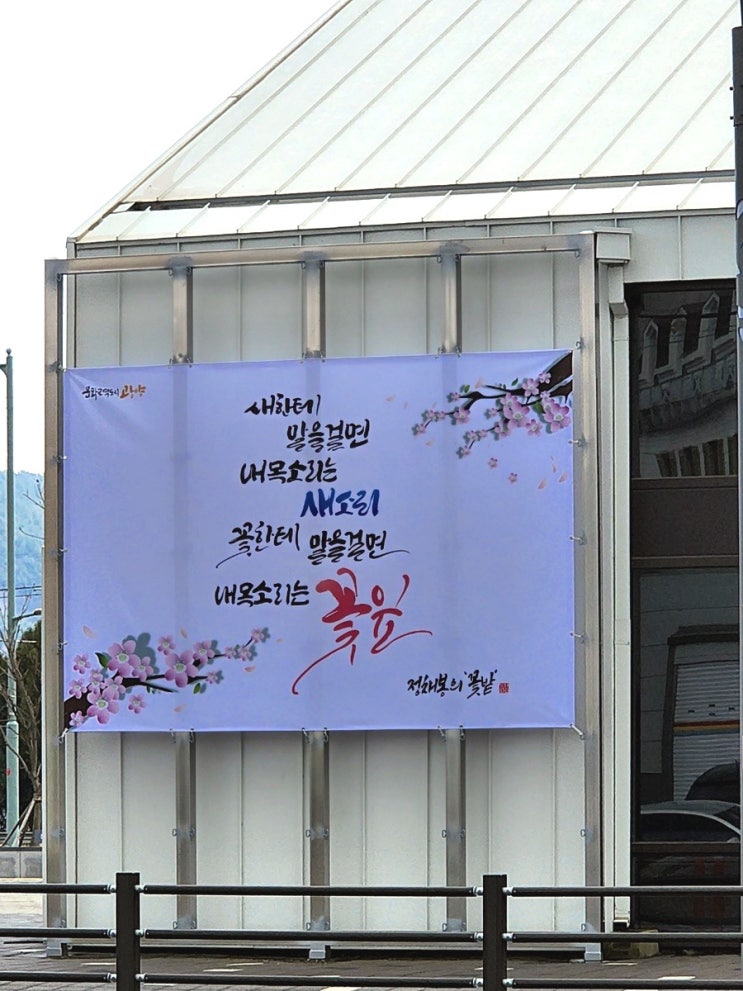 문화도약도시 광양
새한테
말을걸면
내목소리는
새소리
꽃한테 말을걸면
내목소리는 꽃잎
정채봉의 '꽃밭'